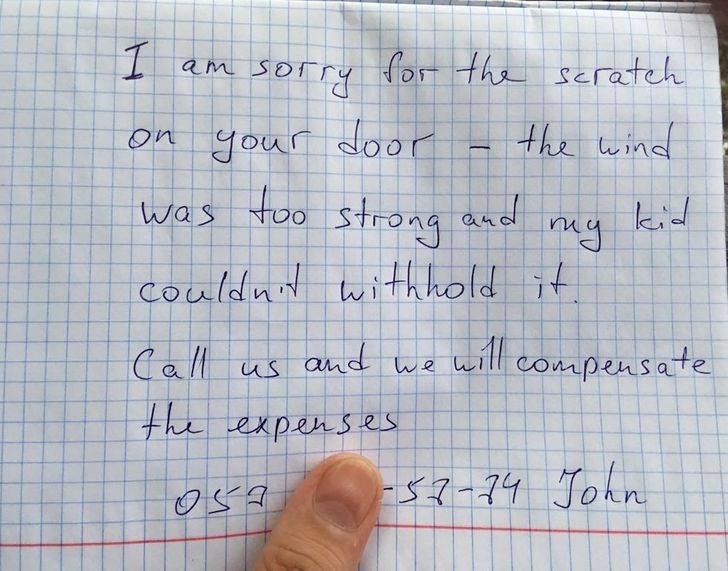 I am sorry for the scratch
on your door - the wind
was too strong and my kid
couldn't withhold it.
Call us and we will compensate
the expenses
057 -57-74 John